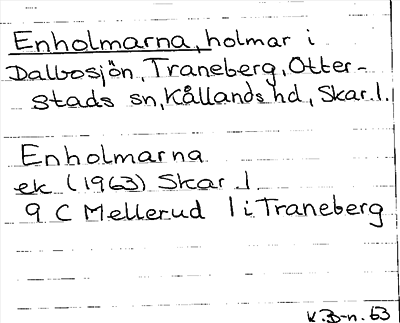 Enholmarna, holmar i
Dalbosjön, Traneberg, Otter-
stads sn, Kållands hd, Skar. l.
Enholmarna
ek (1963) Skar. l
9 C Mellerud l i Traneberg
K.B-n. 63